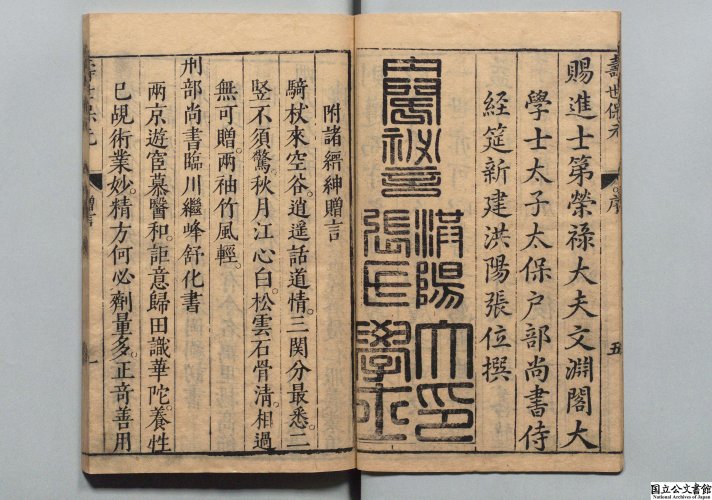 壽世保元
序
五
賜進士第榮祿大夫文淵閣大
學士太子太保户部尚書侍
經筵新建洪陽張位撰
洪陽
張氏
附諸縉紳贈言
騎杖來空谷。逍遥話道情。三関分最悉。二
竪不須驚。秋月江心白。松雲石骨清。相過
無可贈。兩袖竹風輕。
刑部尚書臨川繼峰舒化書
兩京遊宦慕醫和。詎意歸田識華陀。養性
已覘術業妙。精方何必劑量多。正竒善用
壽世保元
贈言
一
国立公文書館
National Archives of Japan